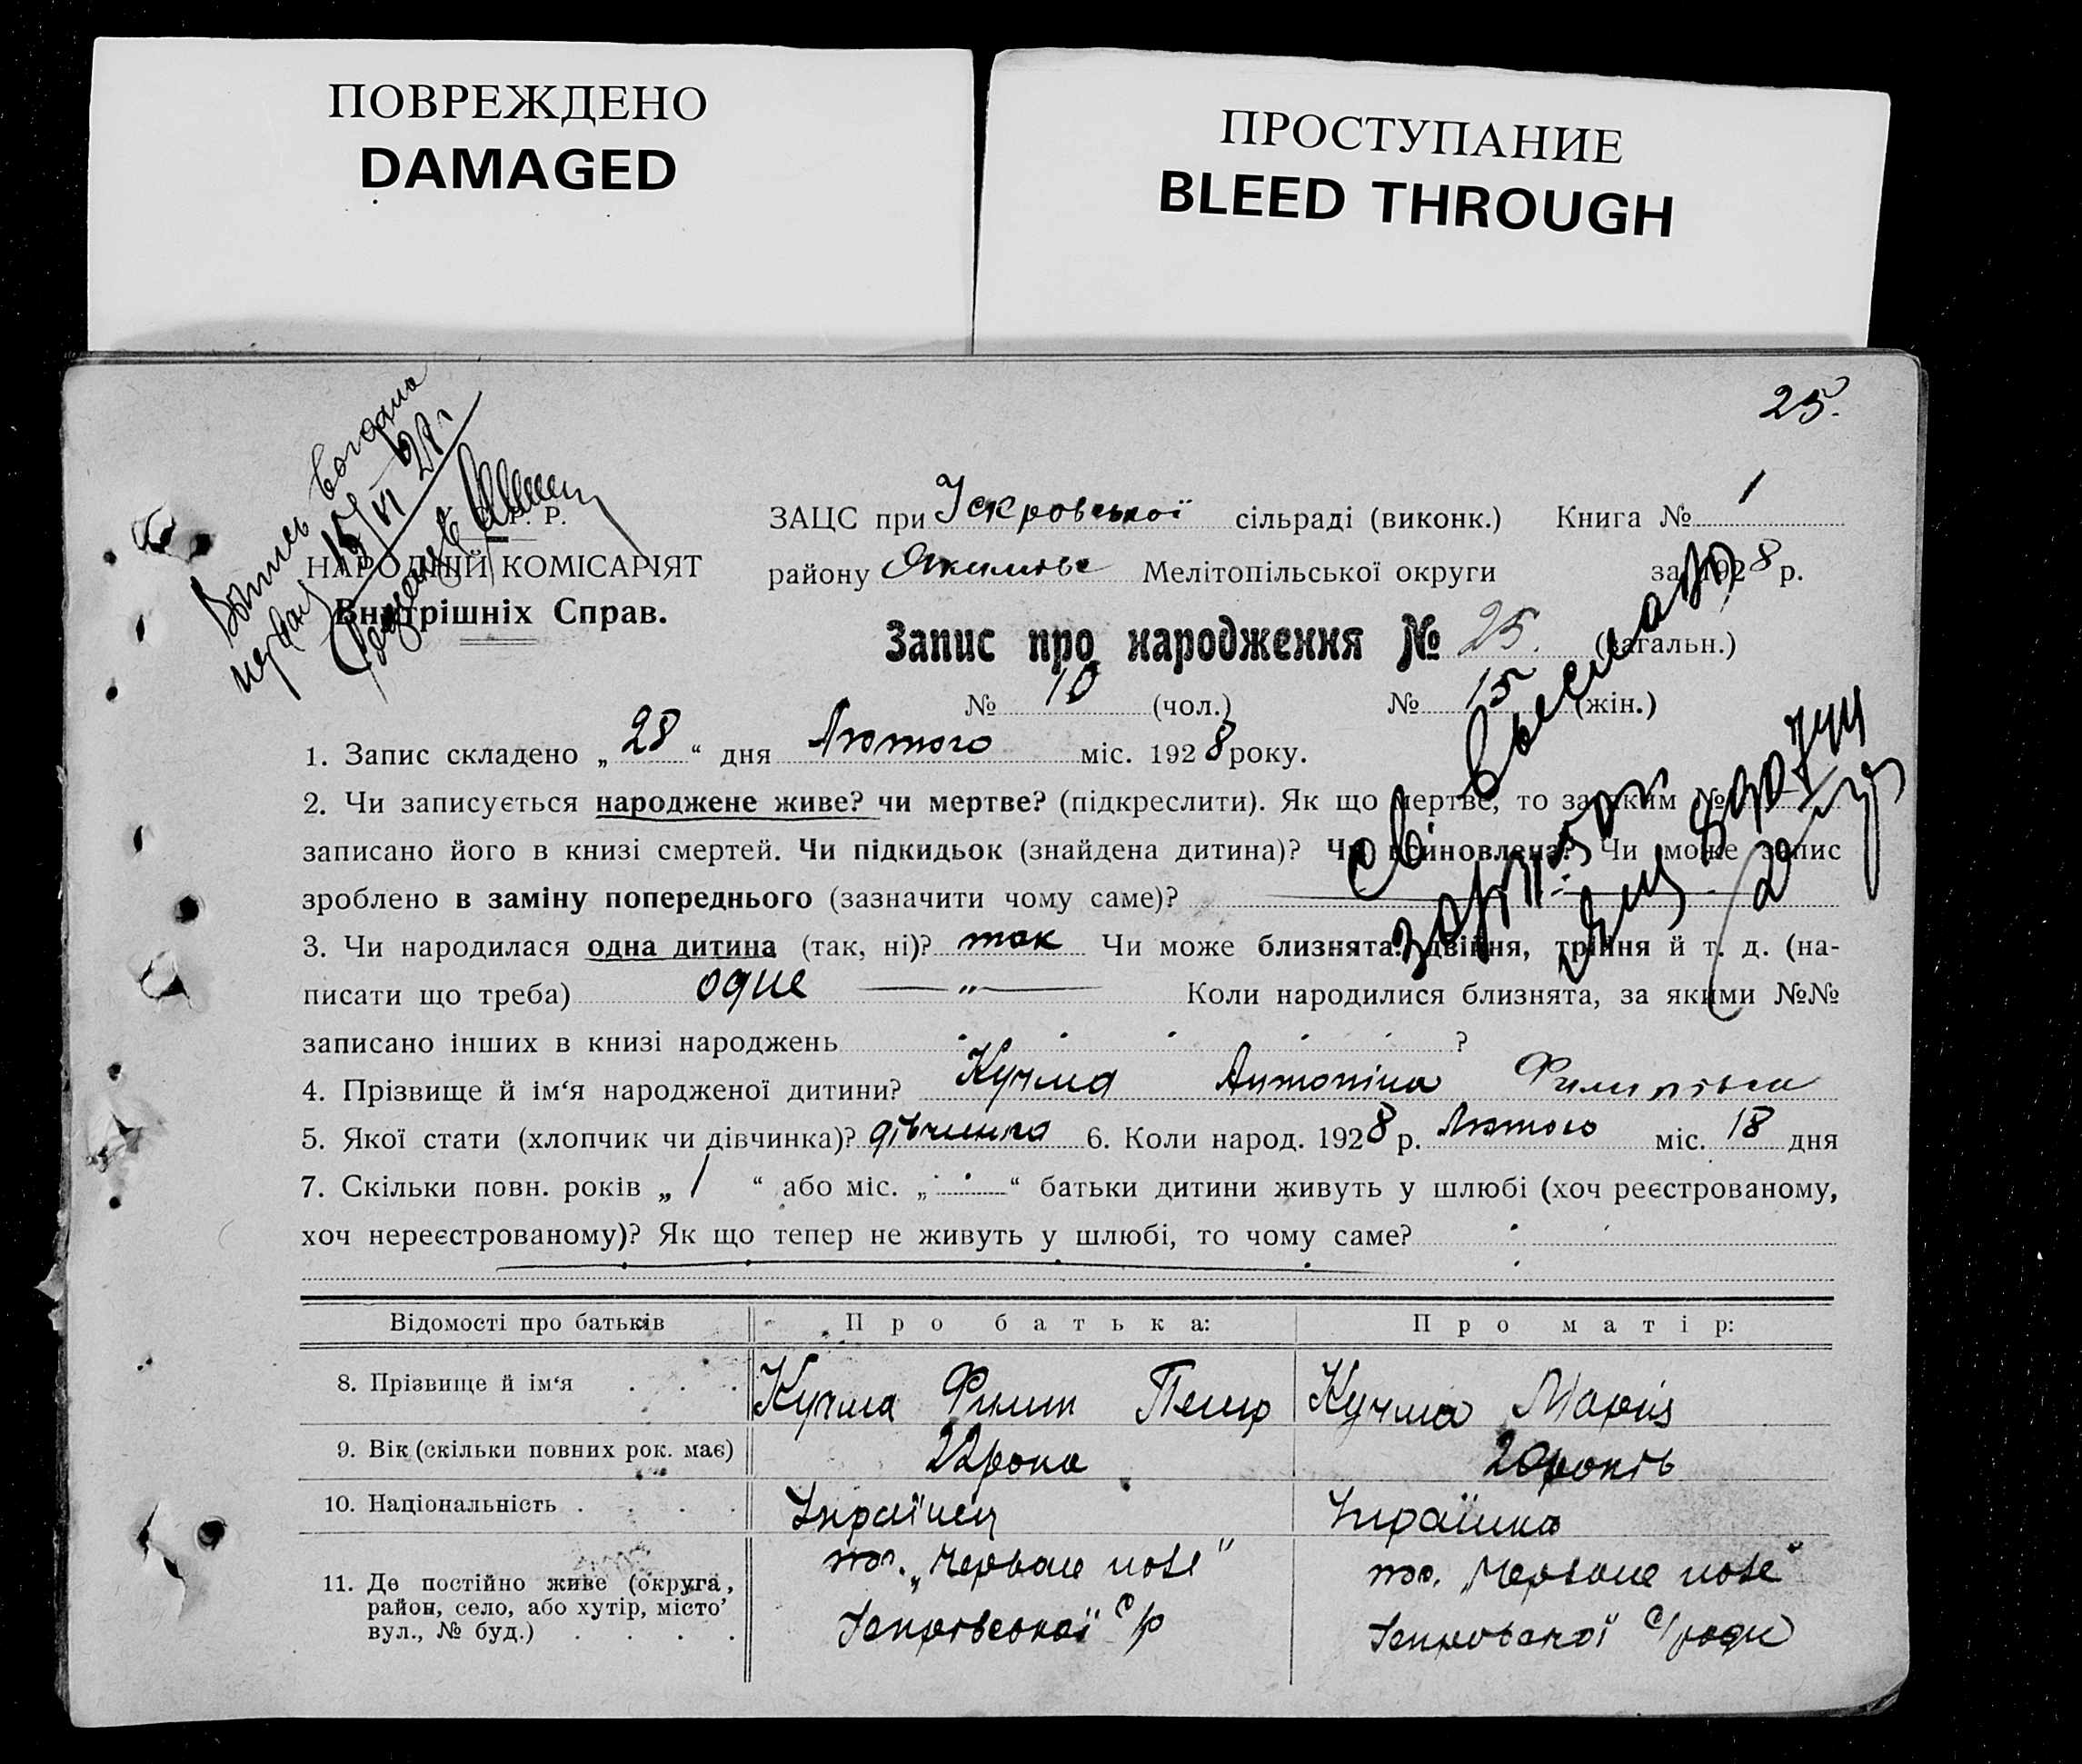 ПОВРЕЖДЕНО
DAMAGED
ПРОСТУПАНИЕ
BLEED THROUGH
25.
Р. Р.
НАРОДНІЙ КОМІСАРІЯТ
Внутрішніх Справ.
15/VI 28 г.
ЗАЦС при Іскровської сільраді (виконк.) Книга № 1
району Мелітопільської округи за 1928 р.
Запис про народження № 25. (загальн.)
№ 10 (чол.) № 15 (жін.)
1. Запис складено „ 28 “ дня Лютого міс. 1928 року.
2. Чи записується народжене живе? чи мертве? (підкреслити). Як що мертве, то за яким №
записано його в книзі смертей. Чи підкидьок (знайдена дитина)? Чи всиновлена? Чи може запис
зроблено в заміну попереднього (зазначити чому саме)?
3. Чи народилася одна дитина (так, ні)? так Чи може близнята: двійня, трійня й т. д. (на-
писати що треба) одне —„— Коли народилися близнята, за якими №№
записано інших в книзі народжень ?
4. Прізвище й ім‘я народженої дитини? Кучма Антоніна Филипівна
5. Якої стати (хлопчик чи дівчинка)? дівчинка 6. Коли народ. 1928 р. Лютого міс. 18 дня
7. Скільки повн. років „ 1 “ або міс. „ “ батьки дитини живуть у шлюбі (хоч реєстрованому,
хоч нереєстрованому)? Як що тепер не живуть у шлюбі, то чому саме?
Відомості про батьків Про батька: Про матір:
8. Прізвище й ім‘я Кучма Филип Кучма Марія
9. Вік (скільки повних рок. має) 22 рока 20 років
10. Національність Українец Українка
11. Де постійно живе (округа, район, село, або хутір, місто’ вул., № буд.)
„Червоне поле“
Іскрівської с/р
„Червоне поле“
Іскровської с/ради